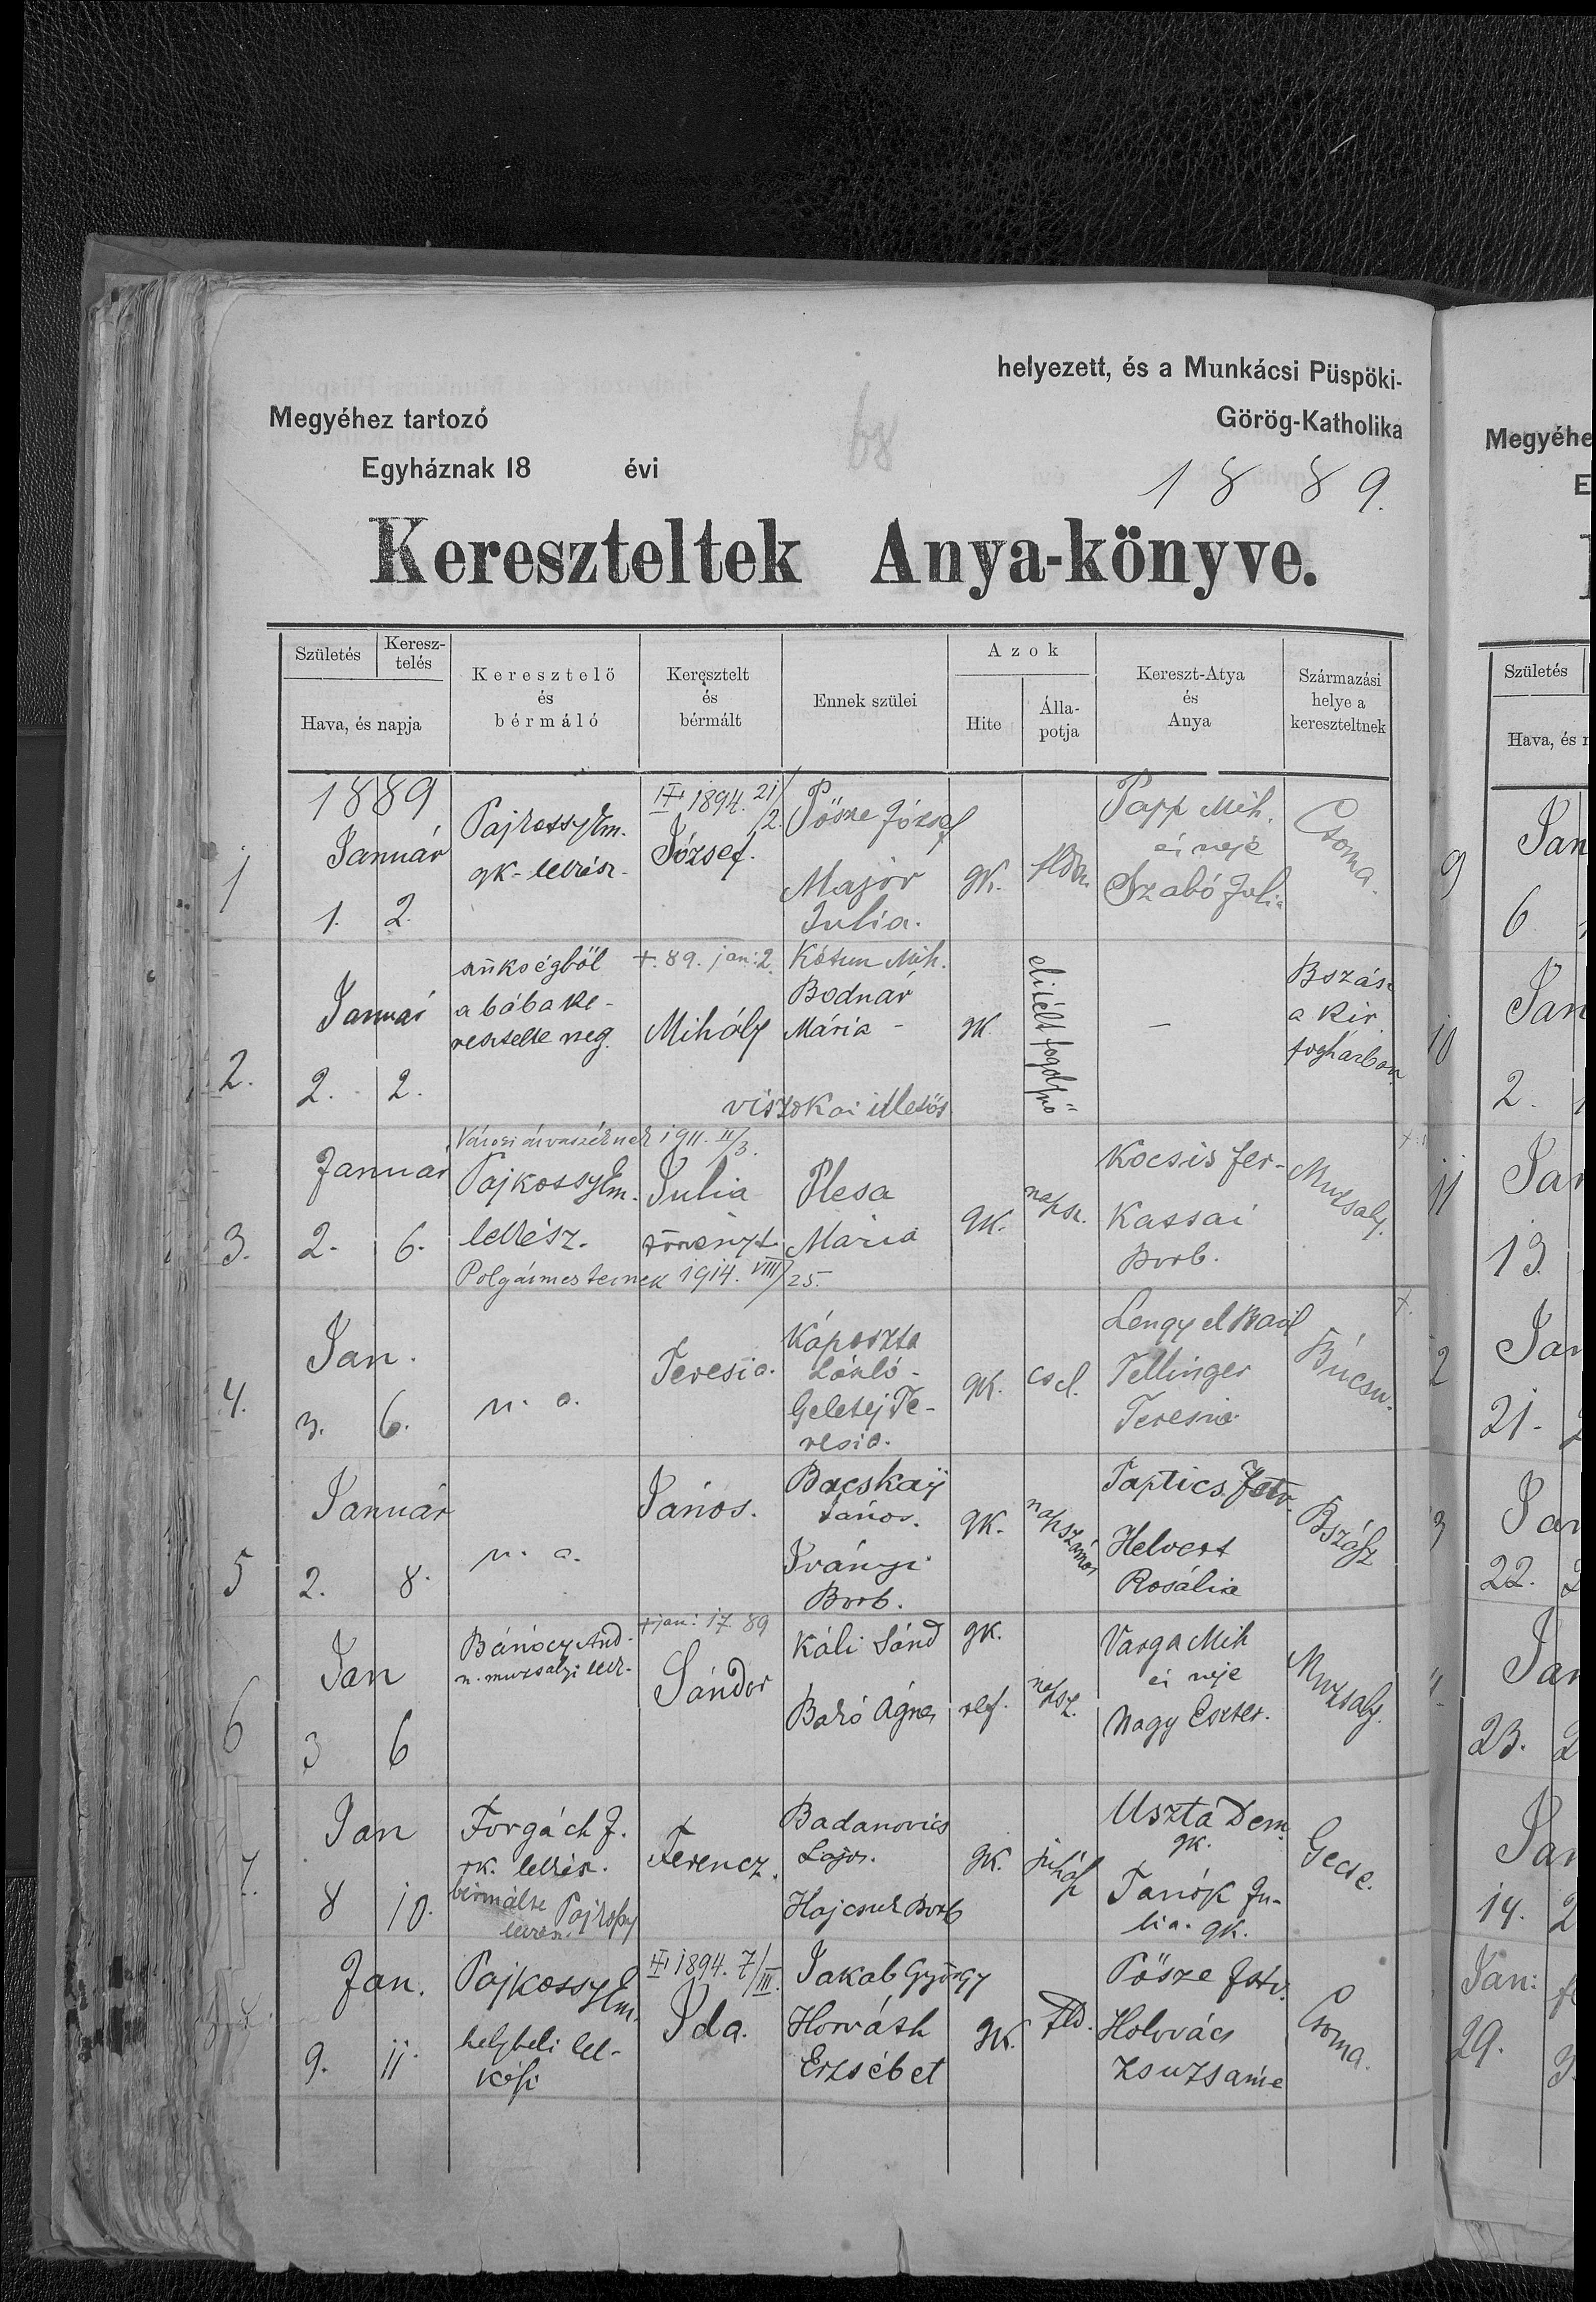 helyezett, és a Munkácsi Püspöki-
Megyéhez tartozó
Görög-Katholika
Egyháznak 18 évi
68
1889.
Kereszteltek Anya-könyve.
Születés
Keresz-
telés
Hava, és napja
Keresztelő
és
bérmáló
Keresztelt
és
bérmált
Ennek szülei
Azok
Hite
Álla-
potja
Kereszt-Atya
és
Anya
Származási
helye a
kereszteltnek
1
1889
Január
1. 2.
Pajkossy Em.
gk. lelkész.
1894. 21/2.
József.
Pősze József
Major
Julia.
gk.
földm
Papp Mih.
és neje
Szabó Julia
Csoma.
2.
Január
2. 2.
szükségből
a bába ke-
resztelte meg.
+. 89. jan: 2.
Mihály
Bodnár
Mária -
viszokai illetős.
gk.
elitélt fogolynő
—
Bszász
a kir.
fogházban
3.
Január
2. 6.
Városi árvaszéknek 1911. II/3.
Pajkossy Em.
lelkész.
Polgármesternek 1914. VIII/25.
Julia
törvényt.
Plesa
Mária
gk.
napsz.
Kocsis Fer-
Kassai
Borb.
Muzsaly.
4.
Jan.
3. 6.
u. a.
Teresia.
Káposzta
László -
Geletej Te-
resia.
gk.
csel.
Lengyel Bazil
Tellinger
Teresia
Búcsu.
5
Január
2. 8.
u. a.
János.
Bacskay
János.
Iványi
Borb.
gk.
napszámos
Taptics Istv.
Helvert
Rosália
Bszász
6
Jan
3 6
Bánóczy And.
n. muzsalyi lelk.
+ jan: 17 89
Sándor
Káli Sánd
Bakó Ágnes
gk.
ref.
napsz.
Varga Mih
és neje
Nagy Eszter.
Muzsaly.
7.
Jan
8 10.
Forgách J.
rk. lelkész.
bérmálta Pajkossy
lelkész.
Ferencz.
Badanovics
Lajos.
Hajcsuk Borb
gk.
juhász
Uszta Dem.
gk.
Tanók Ju-
lia. gk.
Gecse.
8.
Jan.
9. 11.
Pajkossy Em.
helybeli lel-
kész
1894. 7/III.
Ida.
Jakab György
Horváth
Erzsébet
gk.
fld.
Pősze Istv.
Holovács
Zsuzsanne
Csoma.
Megyéhe
E
Születés
Hava, és n
9
Jan
6
10
Jan
2.
11
Jan
13.
2
Jan
21.
3
Jan
22.
4
Jan
23.
Jan
14.
Jan:
29.